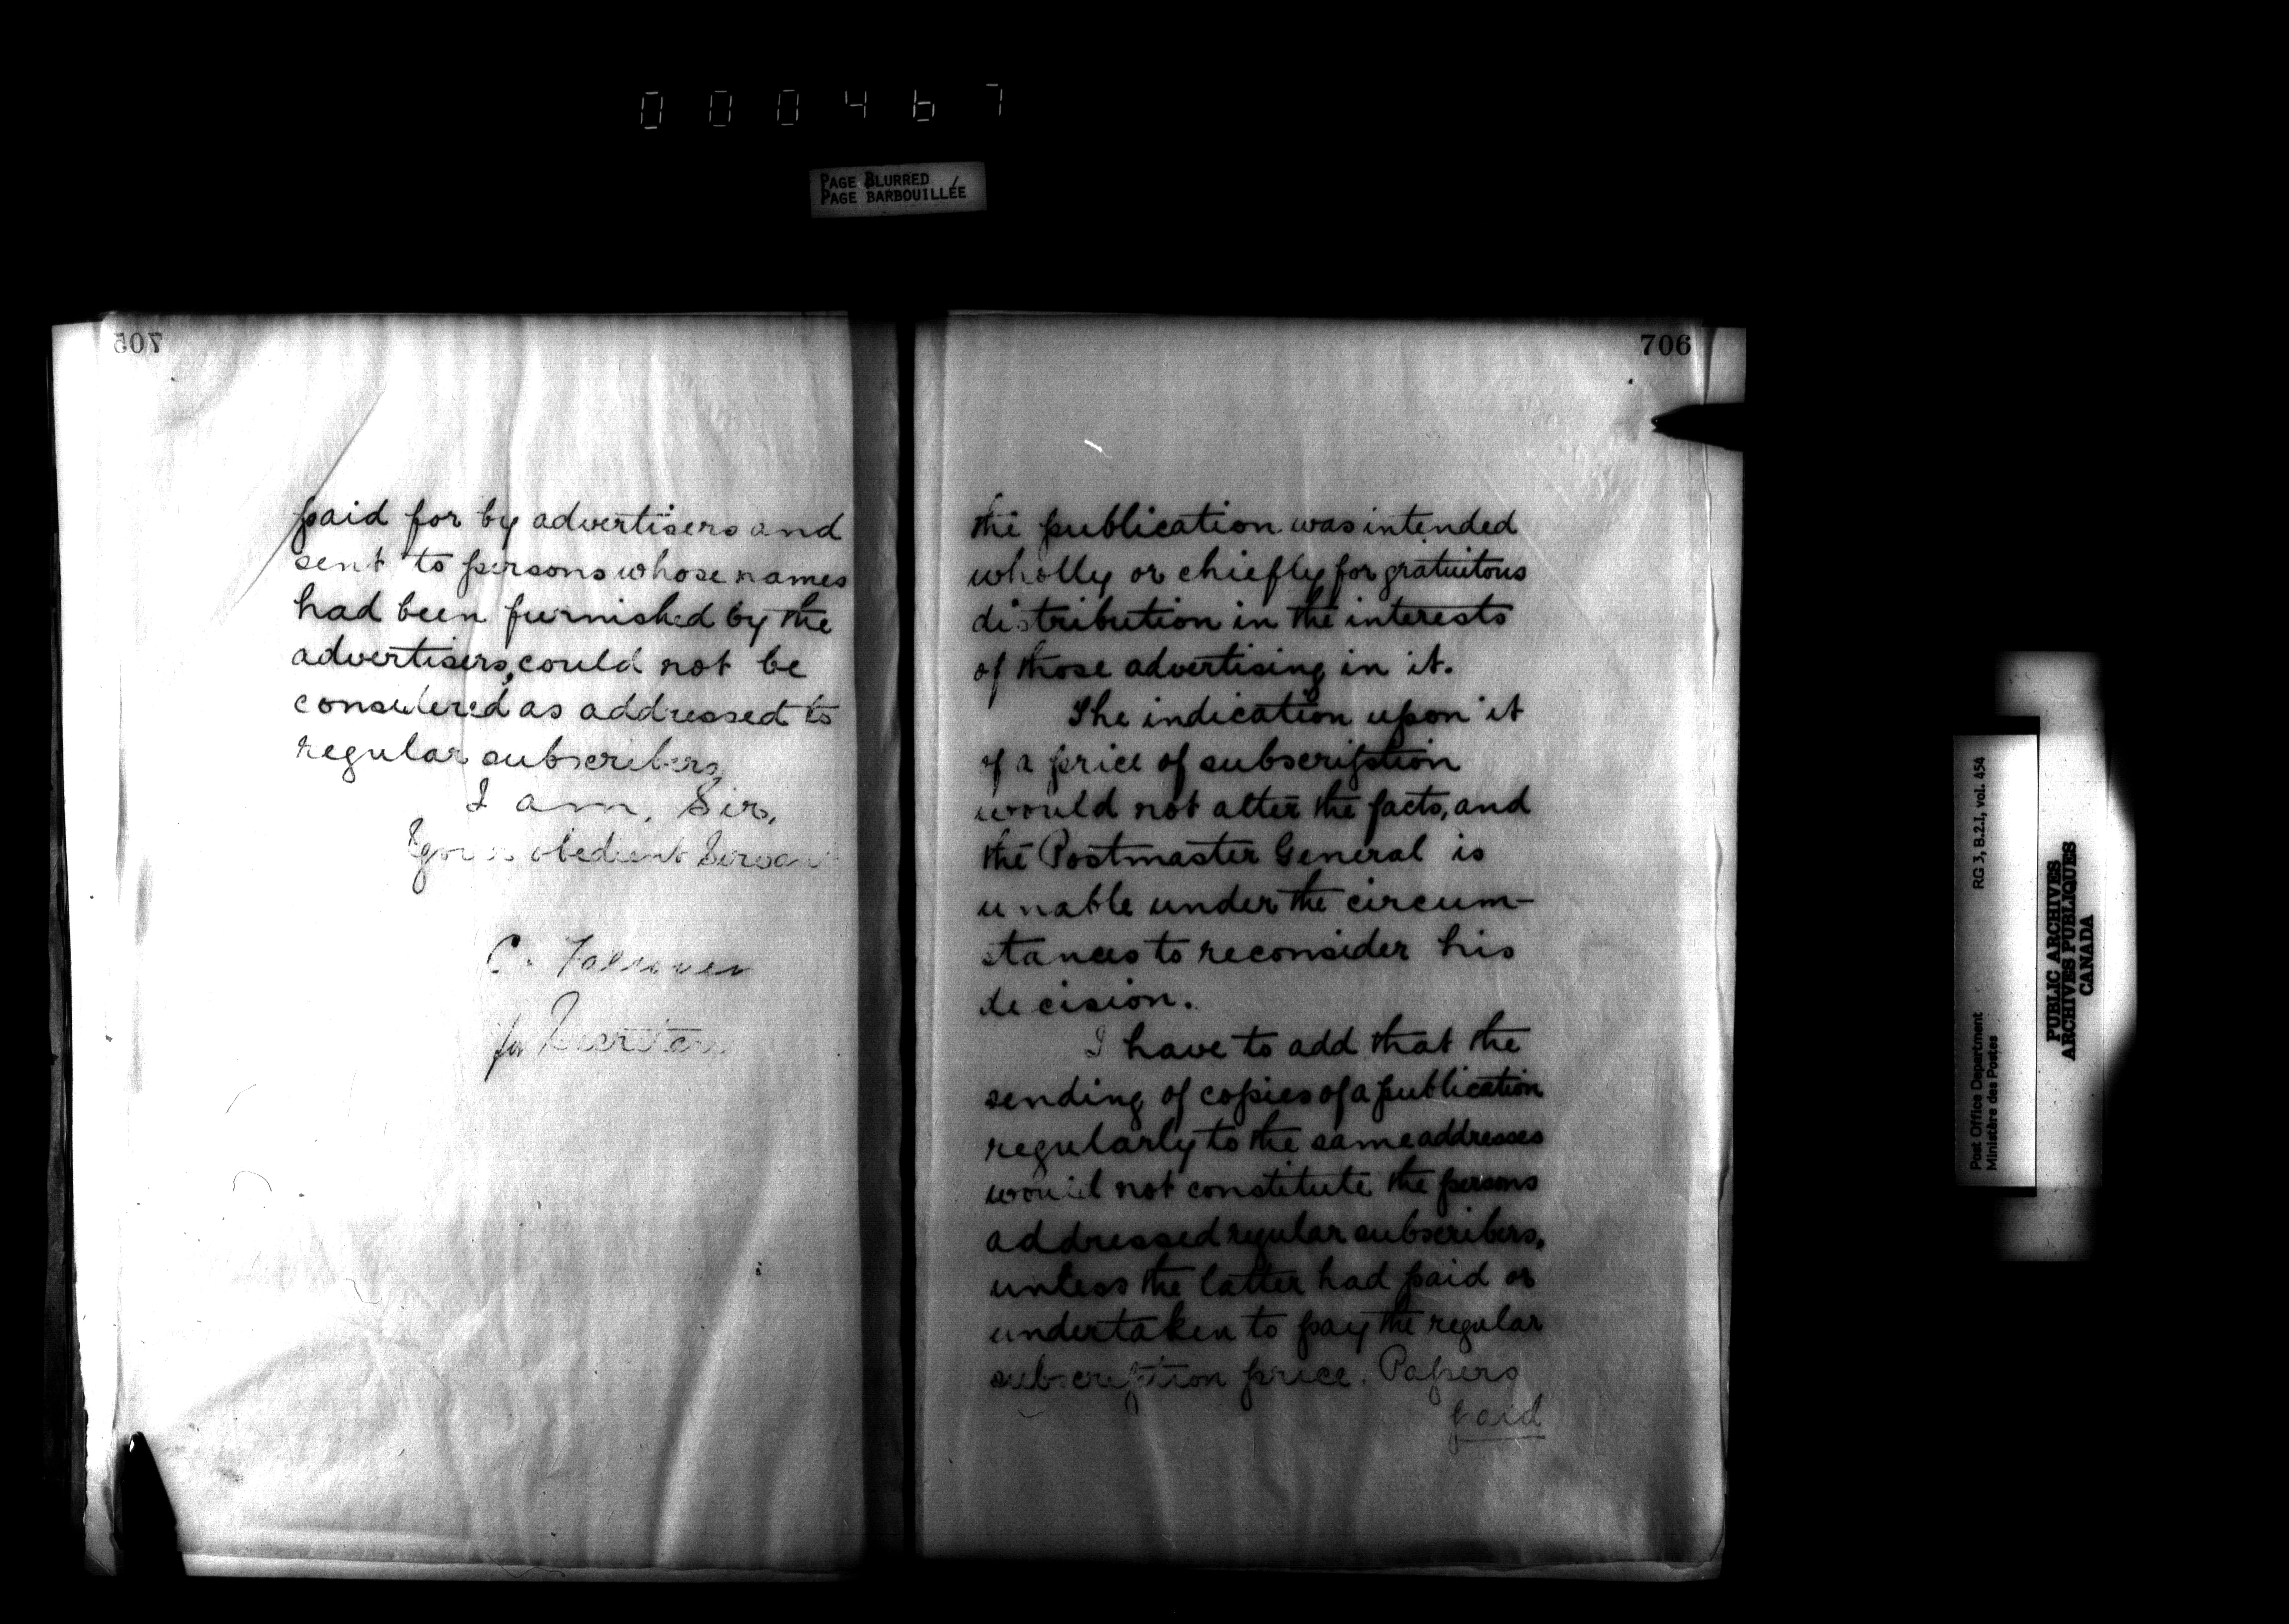 000467
PAGE BLURRED
PAGE BARBOUILLÉE
705
paid for by advertisers and
sent to persons whose names
had been furnished by the
advertisers, could not be
considered as addressed to
regular subscribers,
I am, Sir,
Your obedient Servant
C.
for Secretary
706
the publication was intended
wholly or chiefly for gratuitous
distribution in the interests
of those advertising in it.
The indication upon it
of a price of subscription
would not alter the facts, and
the Postmaster General is
unable under the circum-
stances to reconsider his
decision.
I have to add that the
sending of copies of a publication
regularly to the same addresses
would not constitute the persons
addressed regular subscribers,
unless the latter had paid or
undertaken to pay the regular
subscription price. Papers
paid
Post Office Department
Ministère des Postes
RG 3, B.2.I, vol. 454
PUBLIC ARCHIVES
ARCHIVES PUBLIQUES
CANADA